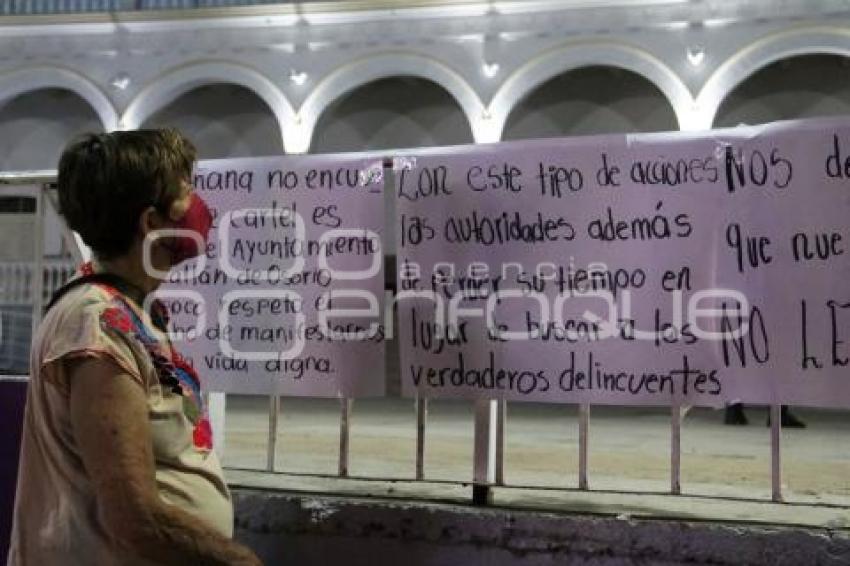 nana no encu
cartel es
el Ayuntamiento
tlán de Osorio
respeta el
ho de manifestarnos
vida digna.
Con este tipo de acciones
las autoridades además
de perder su tiempo en
lugar de buscar a los
verdaderos delincuentes
NOS de
que nue
NO LE
agencia
enfoque